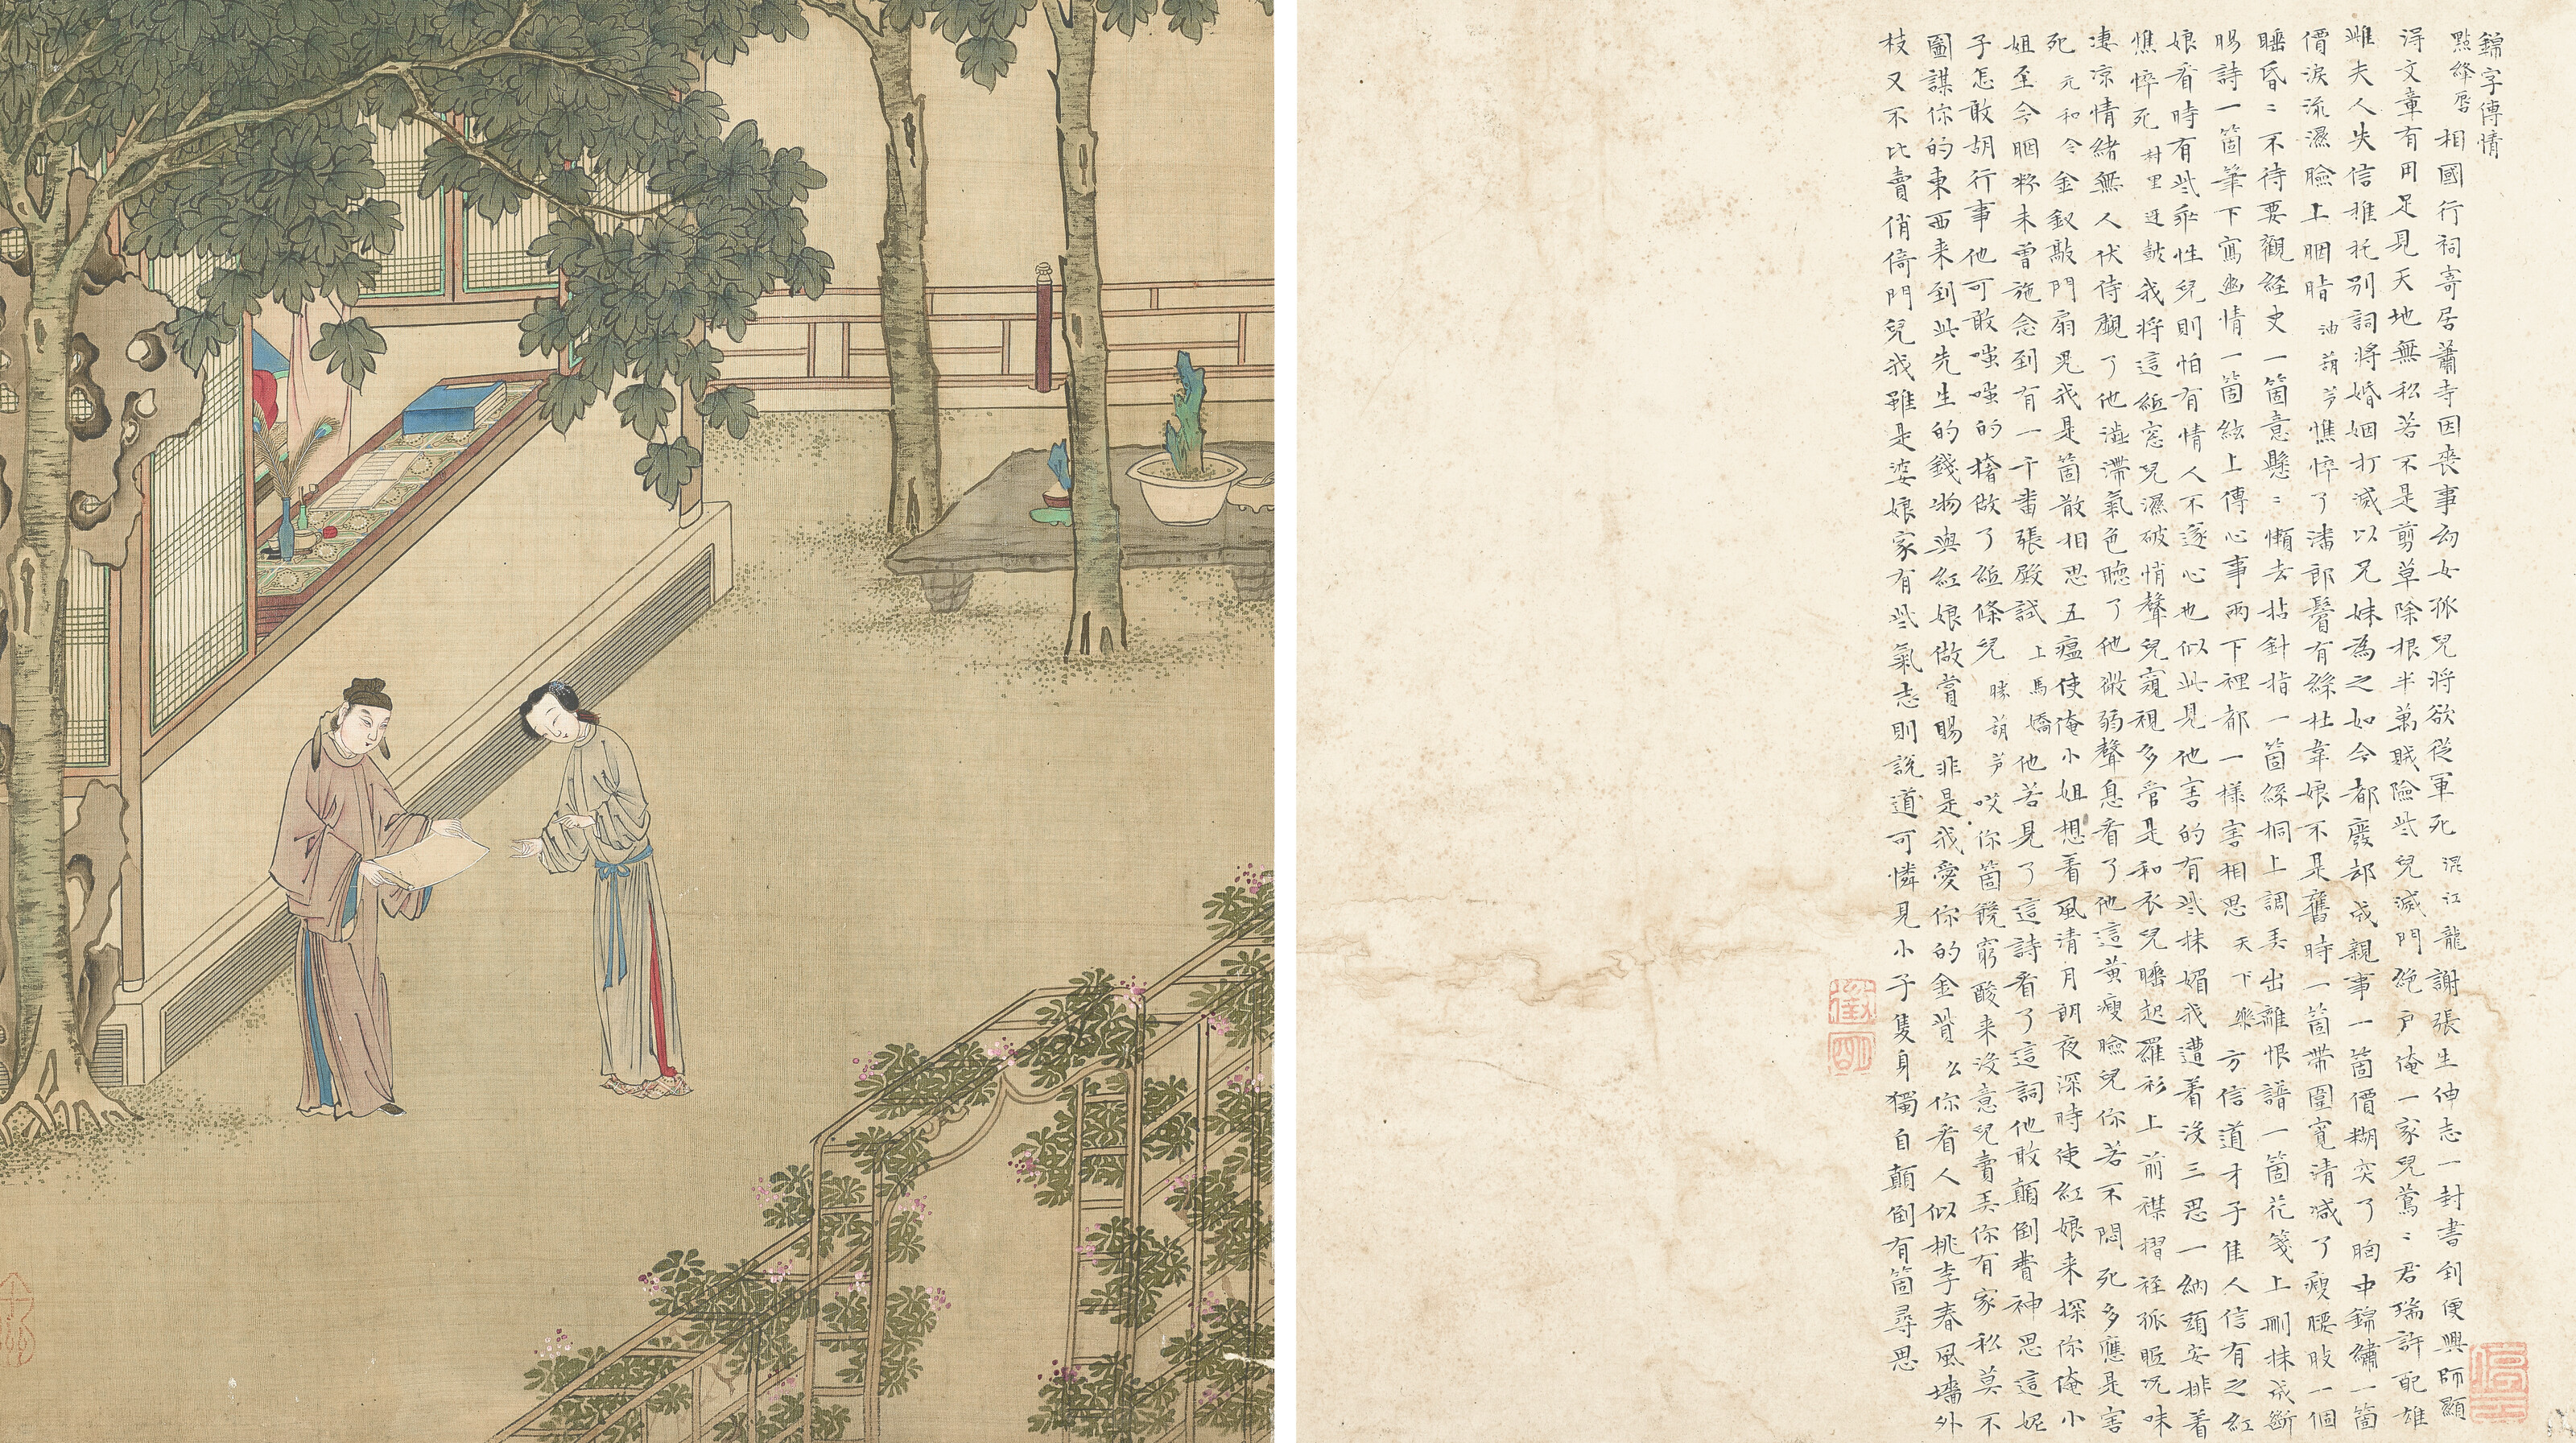 錦字傳情
點絳唇 相國行祠寄居蕭寺因喪事幼女孤兒將欲從軍死 混江龍 謝張生伸志一封書到便興師顯
得文章有用足見天地無私若不是剪草除根半萬賊險些兒滅門絕户俺一家兒鶯〻君瑞許配雄
雌夫人失信推托別詞將婚姻打滅以兄妹為之如今都廢却成親事一箇價糊突了胸中錦繡一箇
價淚流濕臉上胭脂 油葫芦 憔悴了潘郎鬢有絲杜韋娘不是舊時一箇帶圍寬清減了瘦腰肢一個
睡昏〻不待要觀經史一箇意懸〻懶去拈針指一箇絲桐上調弄出離恨譜一箇花箋上刪抹成斷
腸詩一箇筆下寫幽情一箇絃上傳心事兩下裡都一樣害相思 天下樂 方信道才子佳人信有之紅
娘看時有些乖性兒則怕有情人不遂心也似此見他害的有些抹媚我遭着没三思一納頭安排着
憔悴死 村里迓鼓 我將這紙窓兒濕破悄聲兒窺視多管是和衣兒睡起羅衫上前襟褶祬孤眠况味
凄凉情緒無人伏侍覷了他澁滯氣色聽了他微弱聲息看了他這黄瘦臉兒你若不悶死多應是害
死 元和令 金釵敲門扇兒我是箇散相思五瘟使俺小姐想着風清月朗夜深時使紅娘来探你俺小
姐至今胭粉未曾施念到有一千番張殿試 上馬嬌 他若見了這詩看了這詞他敢顛倒費神思這妮
子怎敢胡行事他可敢嗤嗤的撦做了紙條兒 勝葫芦 哎你箇饞窮酸来没意兒賣弄你有家私莫不
圖謀你的東西来到此先生的錢物與紅娘做賞賜非是我愛你的金貲 么 你看人似桃李春風墻外
枝又不比賣俏倚門兒我雖是婆娘家有些氣志則說道可憐見小子隻身獨自顛倒有箇尋思
徵明